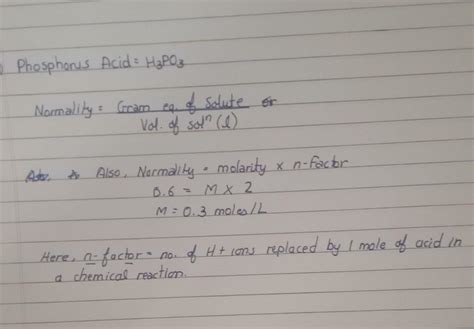 Phosphorus Acid = H3PO3
Normality = Gram eq. of Solute or
Vol. of solⁿ (l)
Also, Normality = molarity x n-factor
0.6 = M x 2
M = 0.3 moles/L
Here, n-factor = no. of H+ ions replaced by 1 mole of acid in
a chemical reaction.